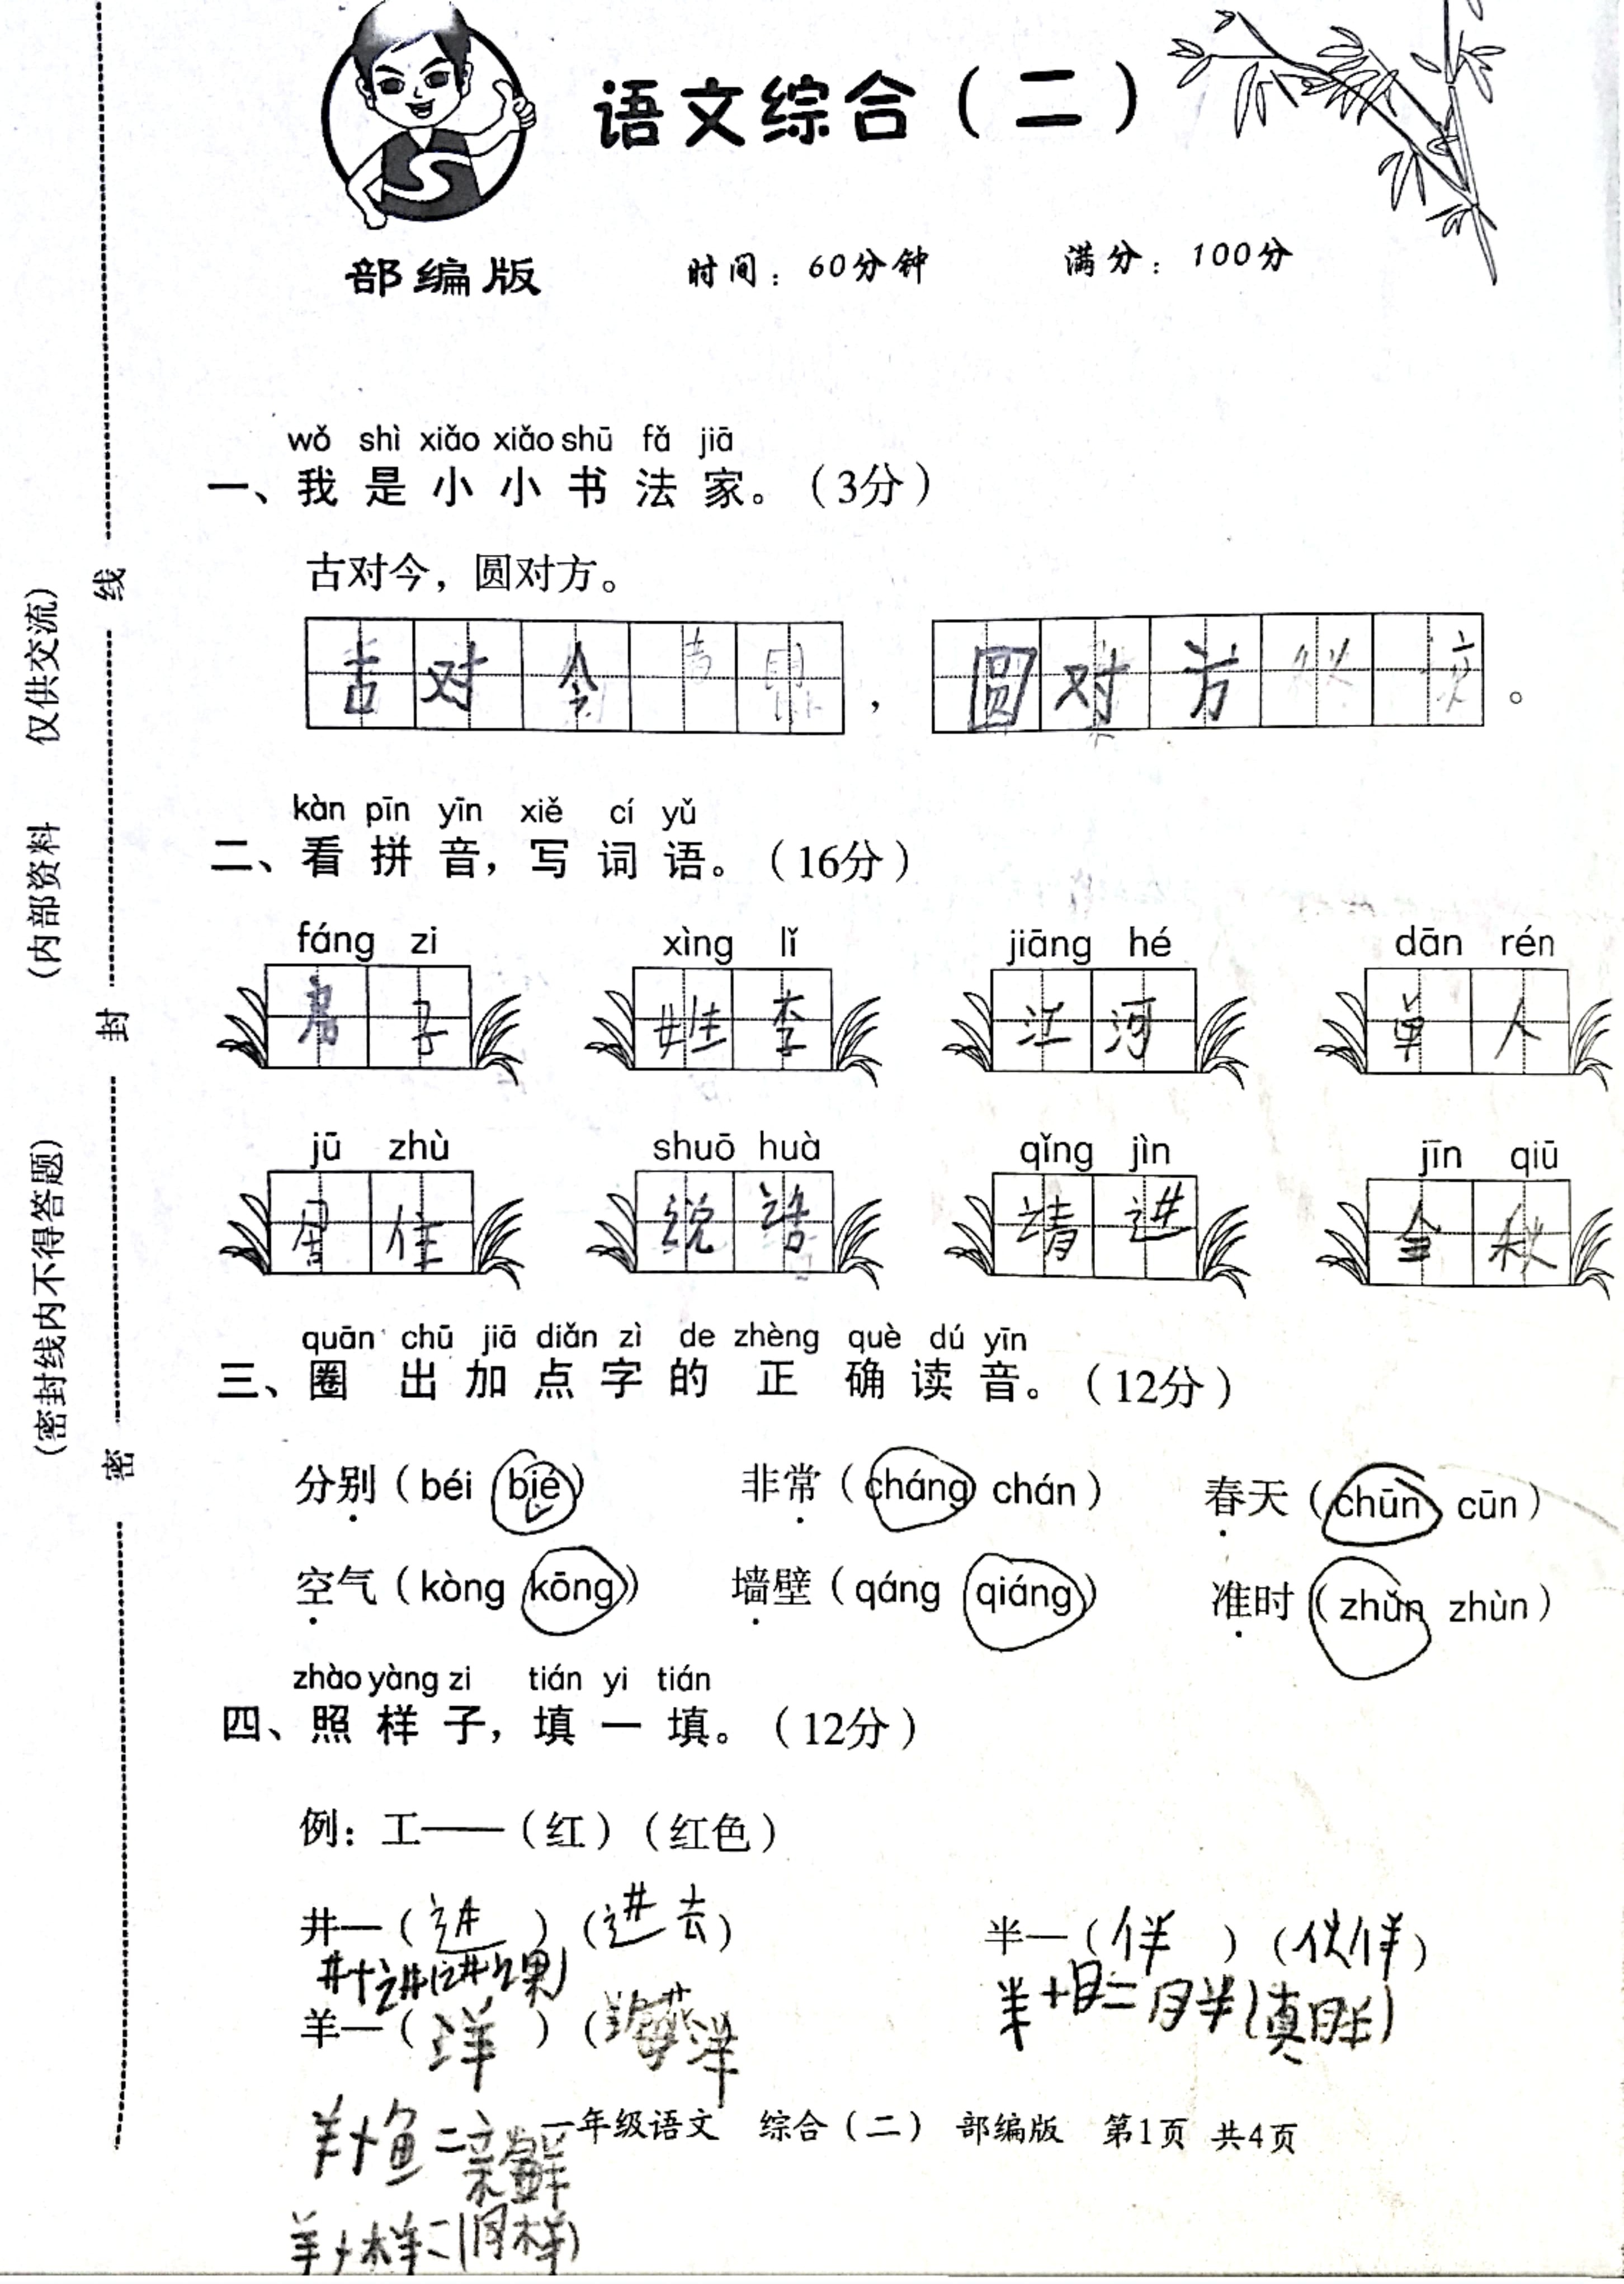 语文综合（二）
部编版 时间：60分钟 满分：100分
（密封线内不得答题） （内部资料 仅供交流）
密 封 线
wǒ shì xiǎo xiǎo shū fǎ jiā
一、我是小小书法家。（3分）
古对今，圆对方。
古对今 ， 圆对方 。
kàn pīn yīn xiě cí yǔ
二、看拼音，写词语。（16分）
fáng zi xìng lǐ jiāng hé dān rén
房子 姓李 江河 单人
jū zhù shuō huà qǐng jìn jīn qiū
居住 说话 请进 金秋
quān chū jiā diǎn zì de zhèng què dú yīn
三、圈出加点字的正确读音。（12分）
分别（béi bié） 非常（cháng chán） 春天（chūn cūn）
空气（kòng kōng） 墙壁（qáng qiáng） 准时（zhǔn zhùn）
zhào yàng zi tián yi tián
四、照样子，填一填。（12分）
例：工——（红）（红色）
井—（进）（进去） 半—（伴）（伙伴）
井+讲(讲课) 半+月=胖(真胖)
羊—（洋）（
羊+鱼=新鲜
一年级语文 综合（二） 部编版 第1页 共4页
羊+木羊=(同样)